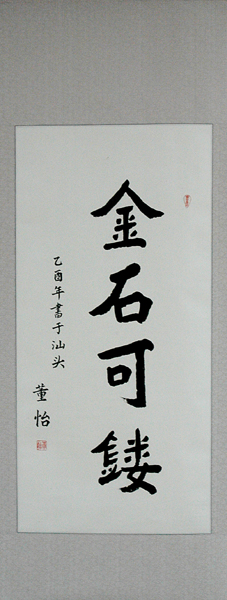 金石可镂
乙酉年書于汕头
董怡